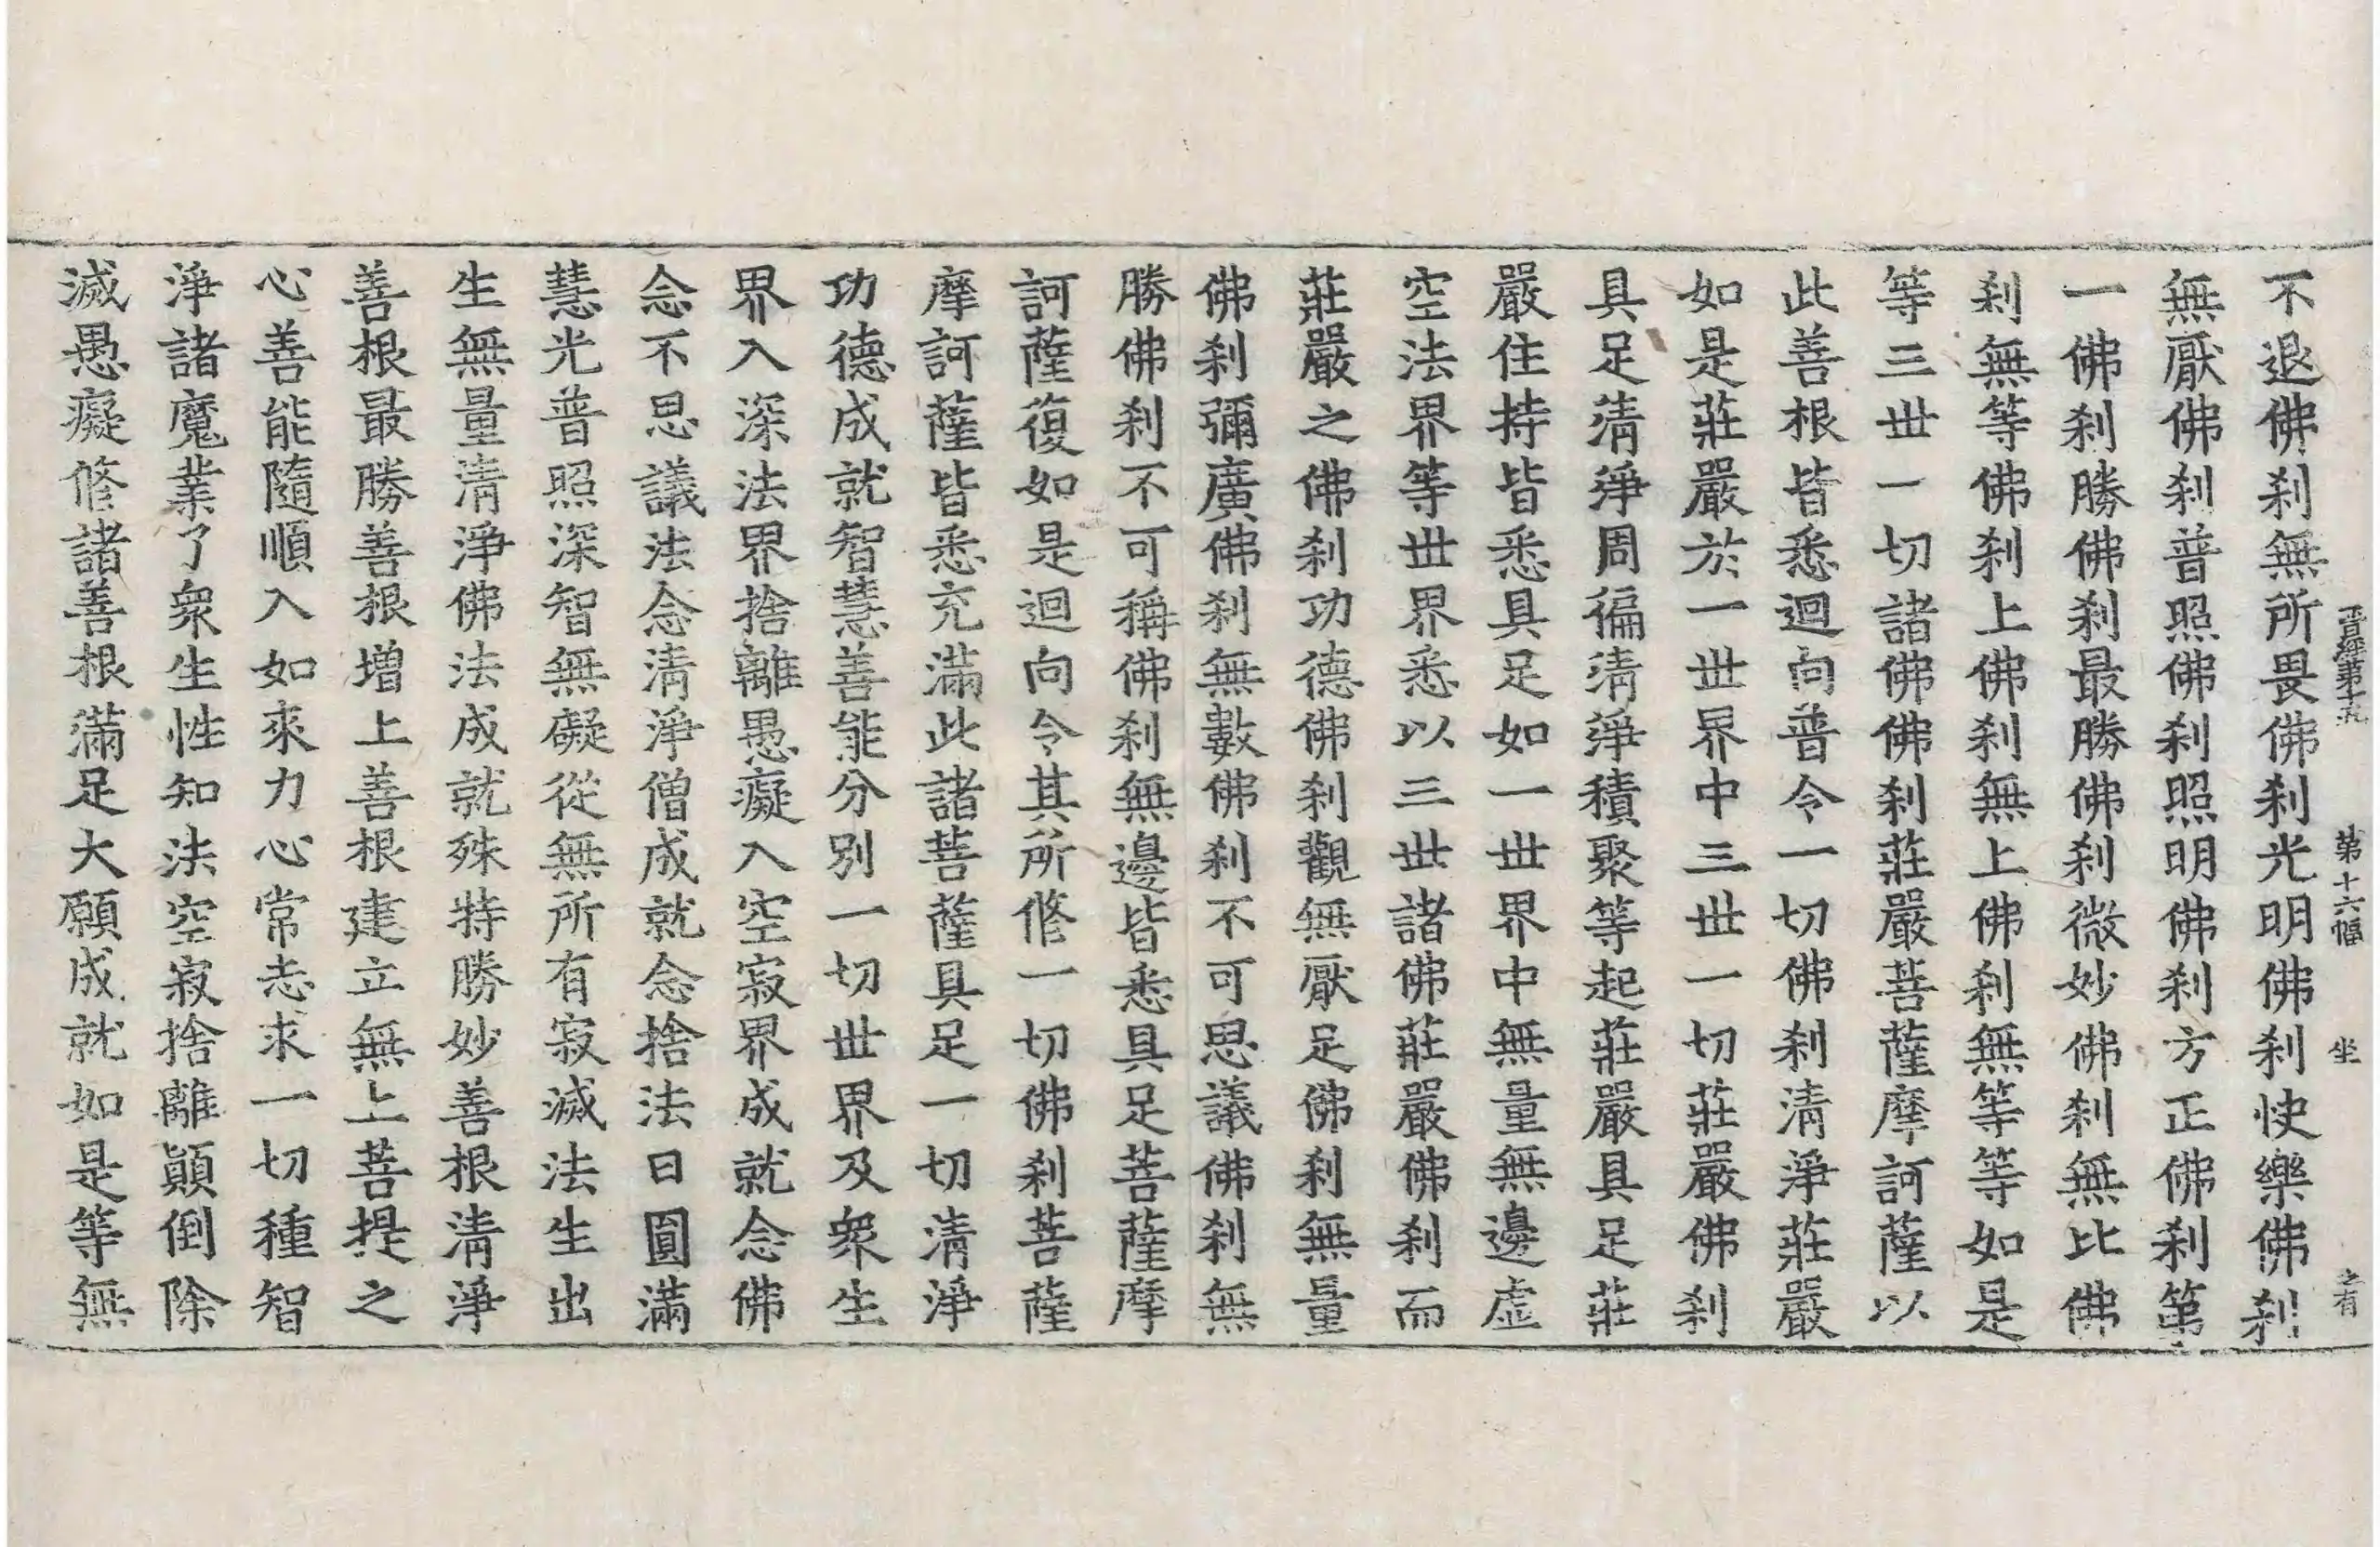 晋經第十九 第十六幅 坐 之有
不退佛刹無所畏佛刹光明佛刹快樂佛刹
無厭佛刹普照佛刹照明佛刹方正佛刹第
一佛刹勝佛刹最勝佛刹微妙佛刹無比佛
刹無等佛刹上佛刹無上佛刹無等等如是
等三世一切諸佛佛刹莊嚴菩薩摩訶薩以
此善根皆悉迴向普令一切佛刹清淨莊嚴
如是莊嚴於一世界中三世一切莊嚴佛刹
具足清淨周徧清淨積聚等起莊嚴具足莊
嚴住持皆悉具足如一世界中無量無邊虛
空法界等世界悉以三世諸佛莊嚴佛刹而
莊嚴之佛刹功德佛刹觀無厭足佛刹無量
佛刹彌廣佛刹無數佛刹不可思議佛刹無
勝佛刹不可稱佛刹無邊皆悉具足菩薩摩
訶薩復如是迴向令其所修一切佛刹菩薩
摩訶薩皆悉充滿此諸菩薩具足一切清淨
功德成就智慧善能分別一切世界及衆生
界入深法界捨離愚癡入空寂界成就念佛
念不思議法念清淨僧成就念捨法日圓滿
慧光普照深智無礙從無所有寂滅法生出
生無量清淨佛法成就殊特勝妙善根清淨
善根最勝善根增上善根建立無上菩提之
心善能隨順入如來力心常志求一切種智
淨諸魔業了衆生性知法空寂捨離顛倒除
滅愚癡修諸善根滿足大願成就如是等無